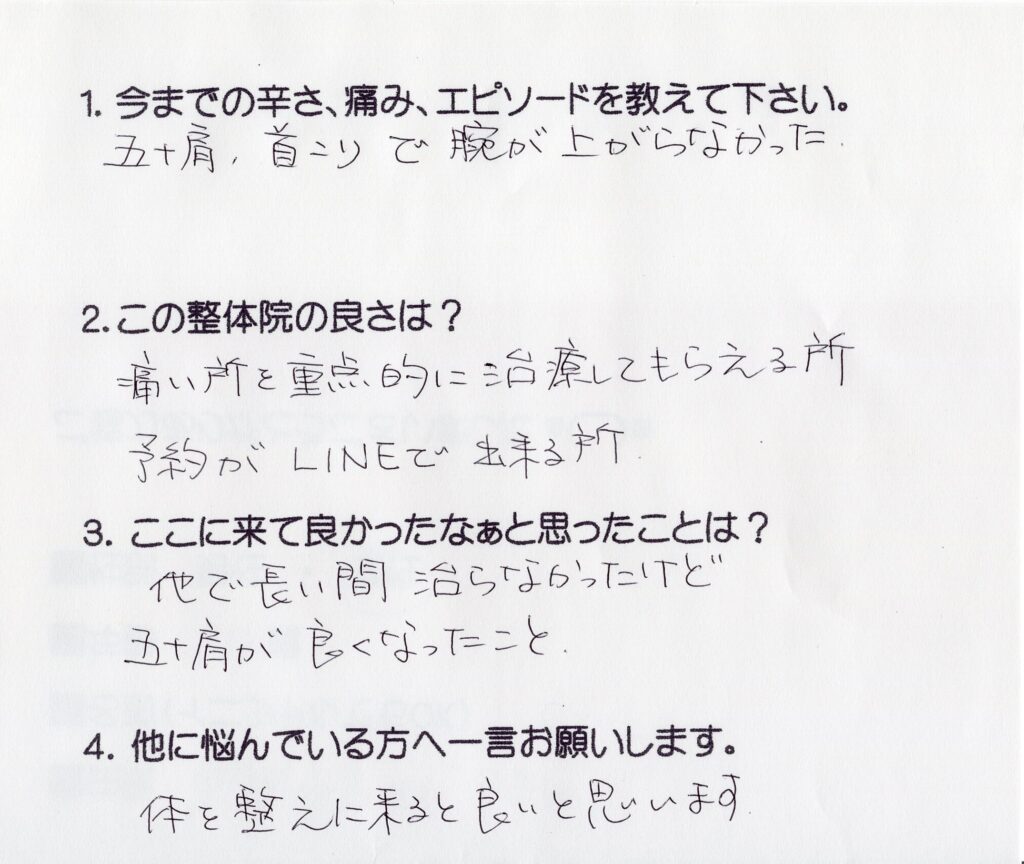 1. 今までの辛さ、痛み、エピソードを教えて下さい。
五十肩、首こりで腕が上がらなかった.
2. この整体院の良さは？
痛い所を重点的に治療してもらえる所
予約がLINEで出来る所.
3. ここに来て良かったなぁと思ったことは？
他で長い間治らなかったけど
五十肩が良くなったこと.
4. 他に悩んでいる方へ一言お願いします。
体を整えに来ると良いと思います.